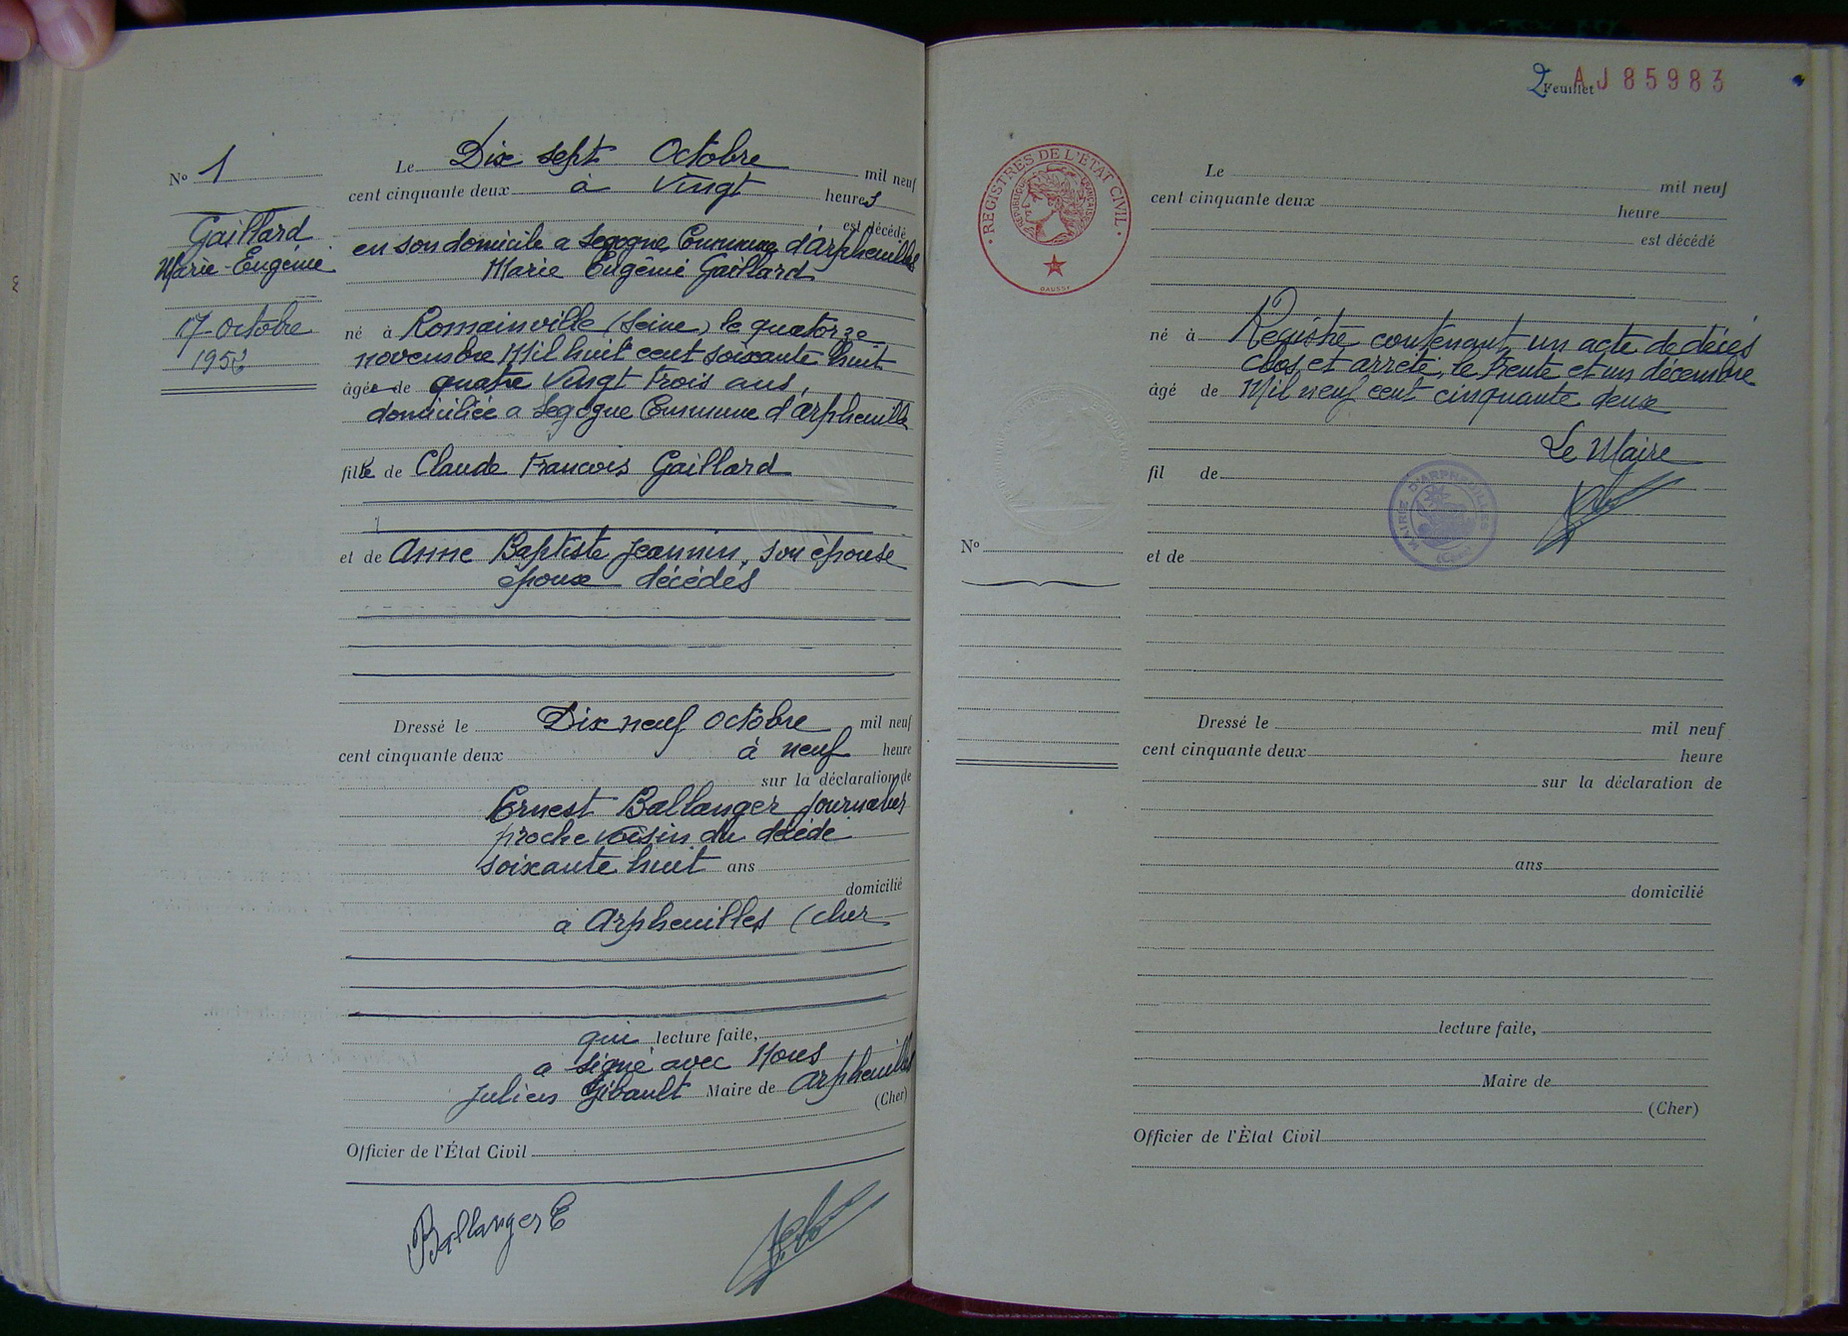 Nº 1
Gaillard
Marie-Eugénie
17 Octobre
1952
Le Dix sept Octobre mil neuf
cent cinquante deux à Vingt heures
est décédé
en son domicile a Segogne Commune d'Arpheuilles
Marie Eugénie Gaillard
né à Romainville (Seine) le quatorze
novembre Mil huit cent soixante huit
âgée de quatre Vingt Trois ans,
domiciliée a Segogne Commune d'Arpheuilles
fille de Claude Francois Gaillard
et de Anne Baptiste Jeannin, son épouse
époux décédés
Dressé le Dix neuf Octobre mil neuf
cent cinquante deux à neuf heure
sur la déclaration de
Ernest Ballanger journalier
proche voisin du décédé
soixante huit ans
domicilié
a Arpheuilles (cher
qui lecture faite,
a signé avec Nous
Julien Gibault Maire de Arpheuilles
(Cher)
Officier de l'État Civil
Ballanger E
2 Feuillet AJ 85983
REGISTRES DE L'ETAT CIVIL
RÉPUBLIQUE FRANÇAISE
Le mil neuf
cent cinquante deux heure
est décédé
né à Registre contenant un acte de décès
clos et arrêté, le trente et un décembre
âgé de Mil neuf cent cinquante deux
Le Maire
fil de
MAIRIE D'ARPHEUILLES
(Cher)
Nº
et de
Dressé le mil neuf
cent cinquante deux heure
sur la déclaration de
ans
domicilié
lecture faite,
Maire de
(Cher)
Officier de l'État Civil